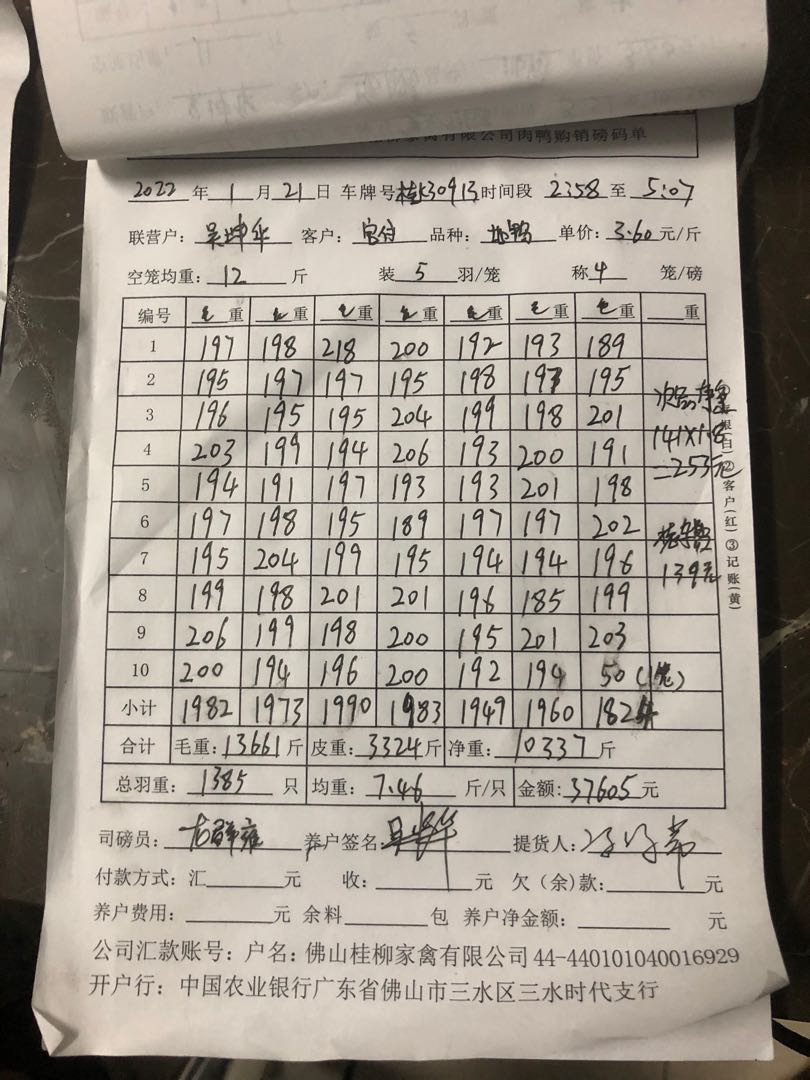 柳家禽有限公司肉鸭购销磅码单
2022 年 1 月 21 日 车牌号桂K30913时间段 2:58 至 5:07
联营户: 吴坤华 客户: 品种: 单价: 3.60 元/斤
空笼均重: 12 斤 装 5 羽/笼 称 4 笼/磅
编号 毛重 毛重 毛重 毛重 毛重 毛重 毛重 重
1 197 198 218 200 192 193 189
2 195 197 197 195 198 197 195
3 196 195 195 204 199 198 201 次品净重
4 203 199 194 206 193 200 191 141×1.8
5 194 191 197 193 193 201 198 =253元
6 197 198 195 189 197 197 202
7 195 204 199 195 194 194 196 139元
8 199 198 201 201 196 185 199
9 206 199 198 200 195 201 203
10 200 194 196 200 192 194 50 (1笼)
小计 1982 1973 1990 1983 1949 1960 1824
合计 毛重:13661斤 皮重:3324斤 净重: 10337 斤
总羽重: 1385 只 均重: 7.46 斤/只 金额:37605元
司磅员: 养户签名: 提货人:
付款方式: 汇 元 收: 元 欠(余)款: 元
养户费用: 元 余料 包 养户净金额: 元
公司汇款账号: 户名: 佛山桂柳家禽有限公司 44-440101040016929
开户行: 中国农业银行广东省佛山市三水区三水时代支行
根(白)②客户(红)③记账(黄)